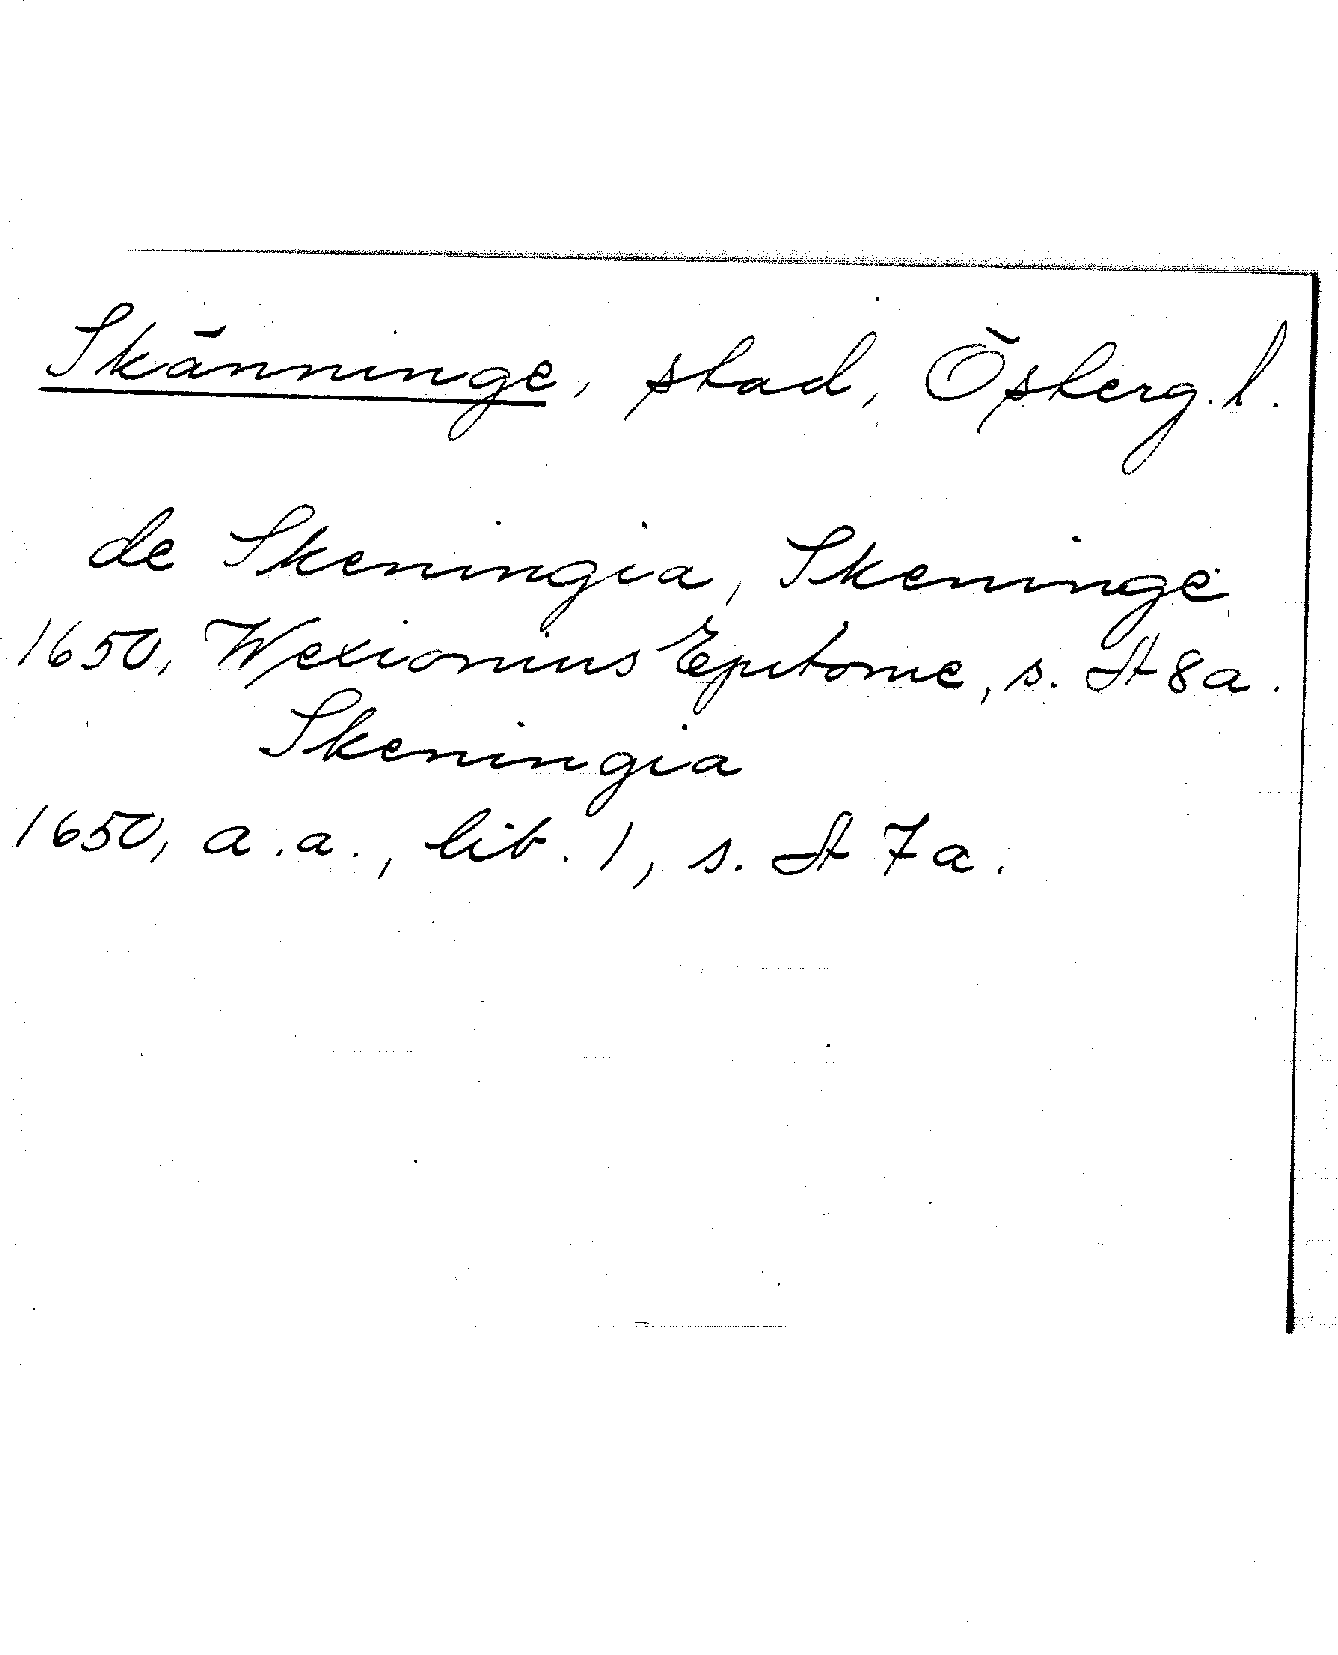 Skänninge, stad, Österg. l.
de Skeningia, Skeninge
1650, Wexionius Epitome, s. A 8 a.
Skeningia
1650, a. a., lib. 1, s. A 7 a.